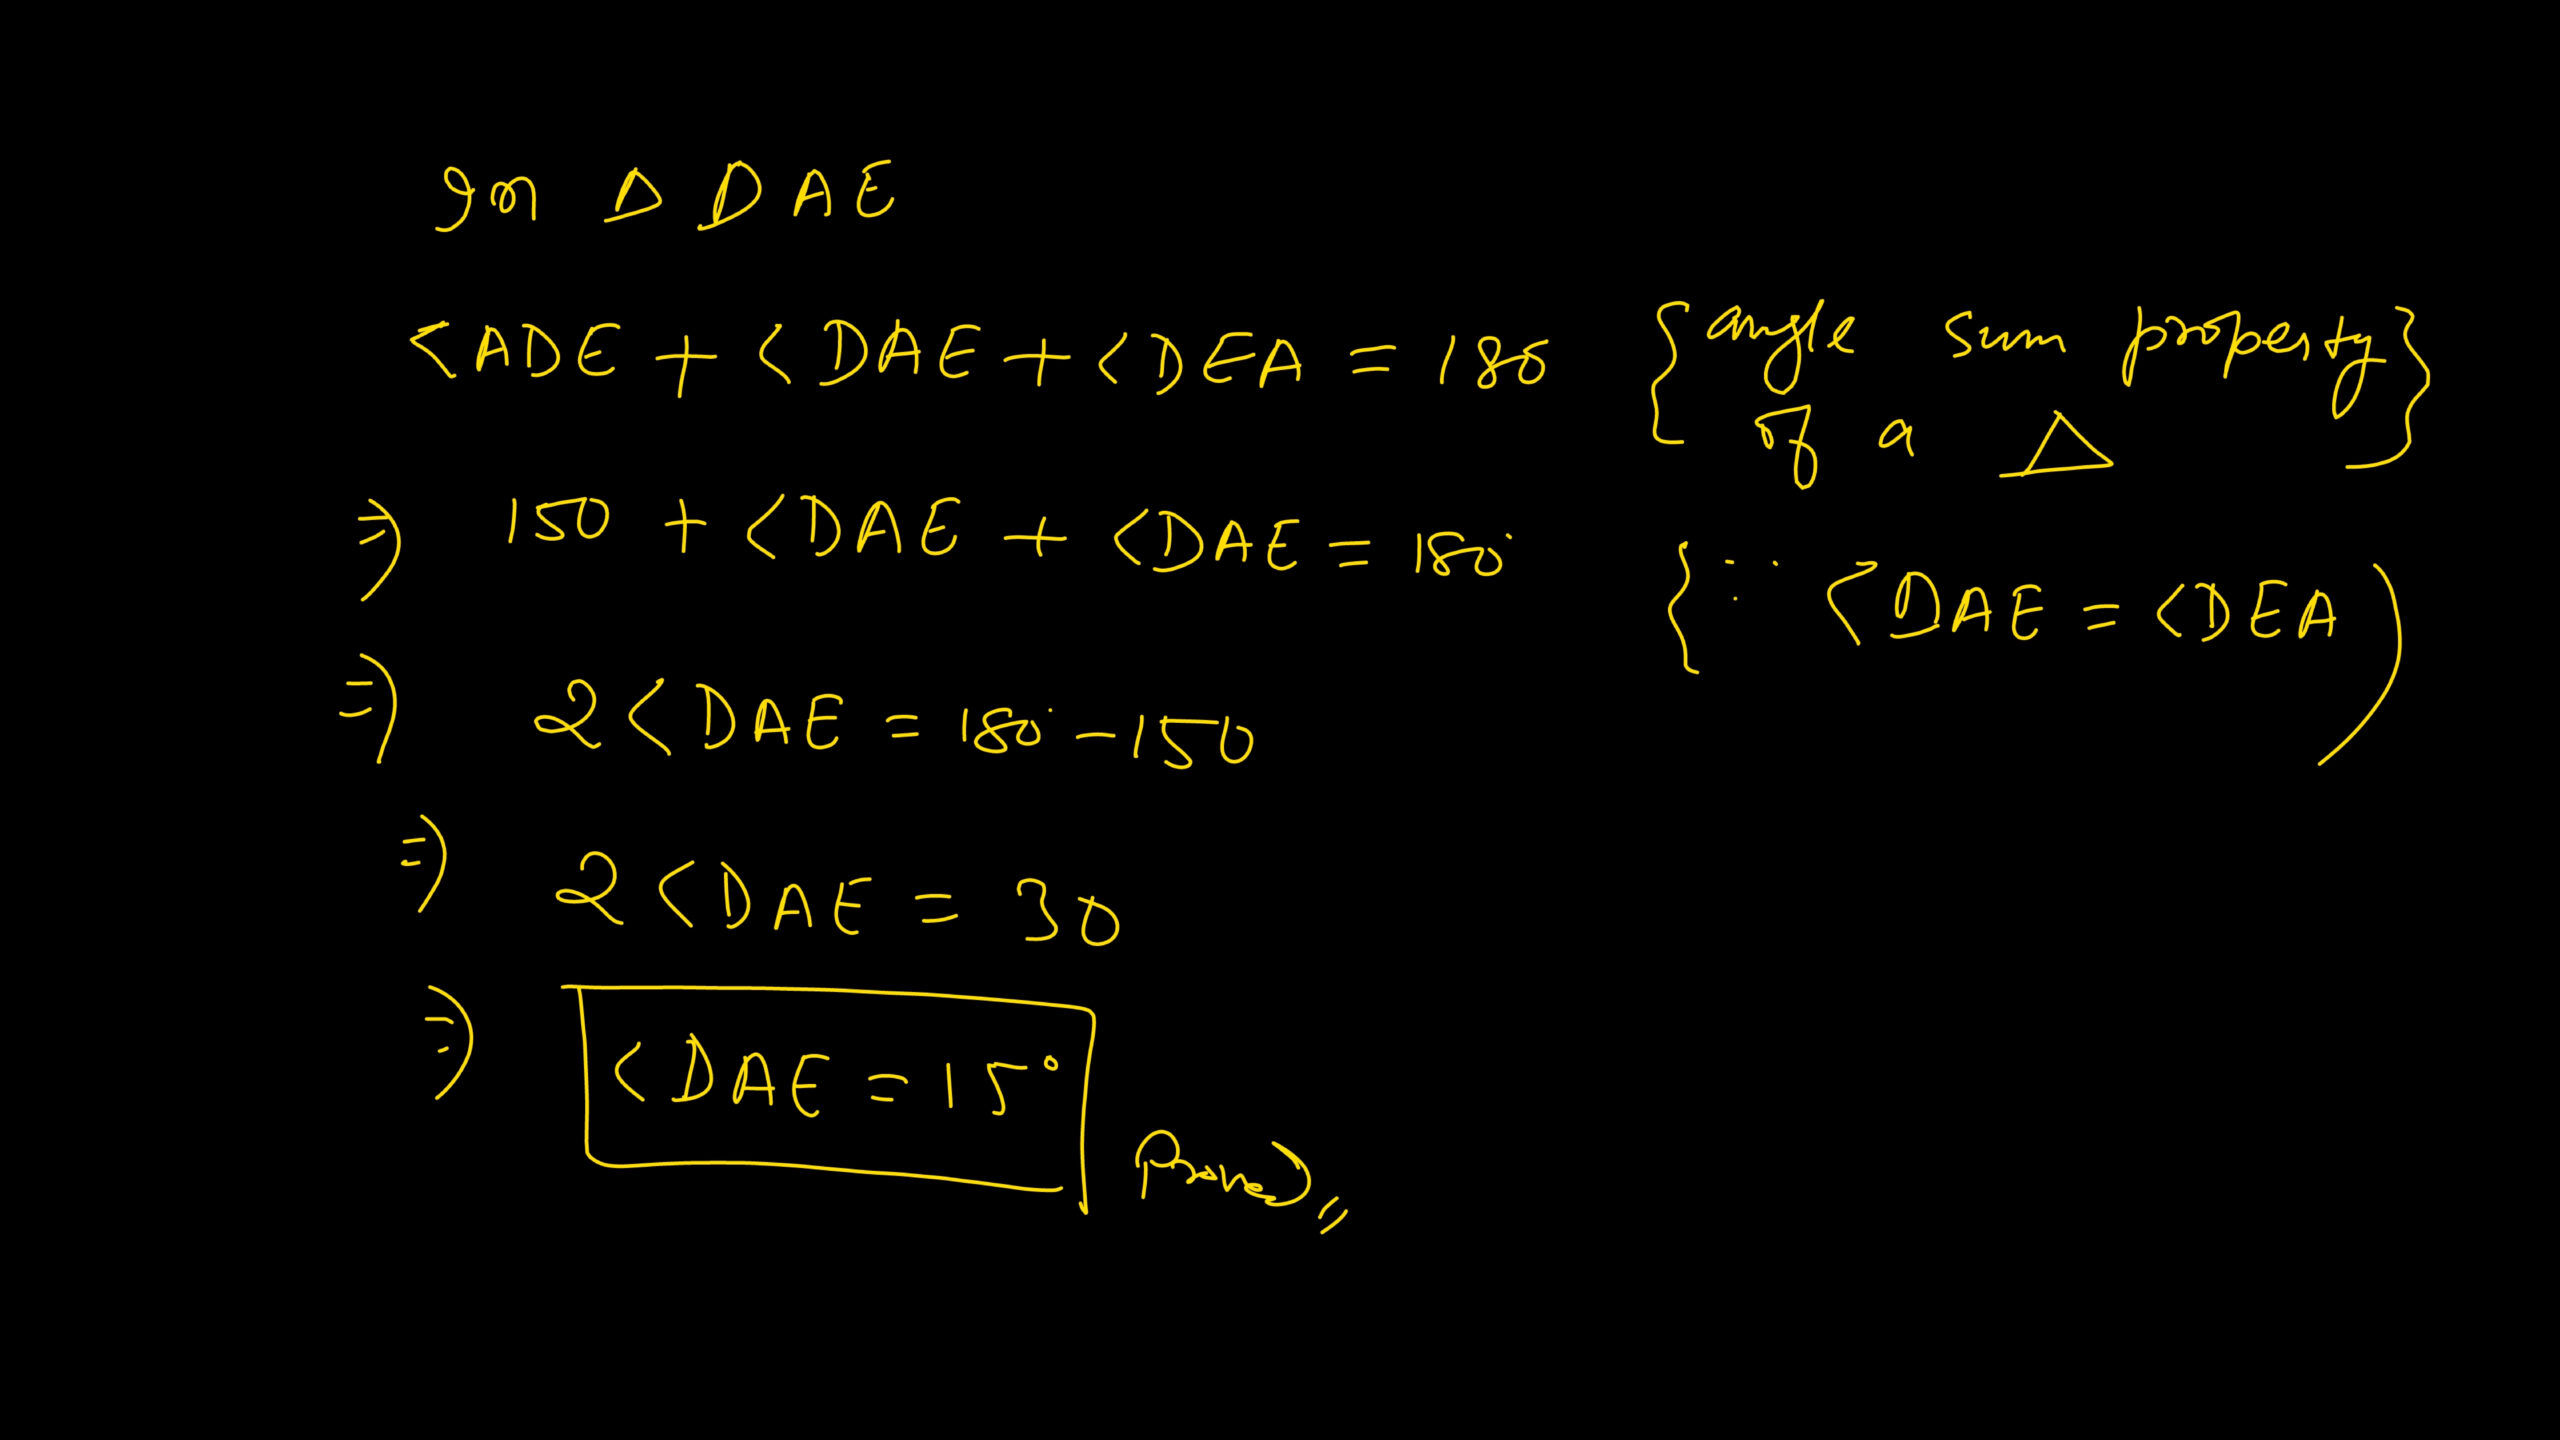 In Δ DAE
<ADE + <DAE + <DEA = 180 {angle sum property}
of a Δ
⇒ 150 + <DAE + <DAE = 180° {∵ <DAE = <DEA)
⇒ 2<DAE = 180° - 150
⇒ 2<DAE = 30
⇒ <DAE = 15°
Proved,,